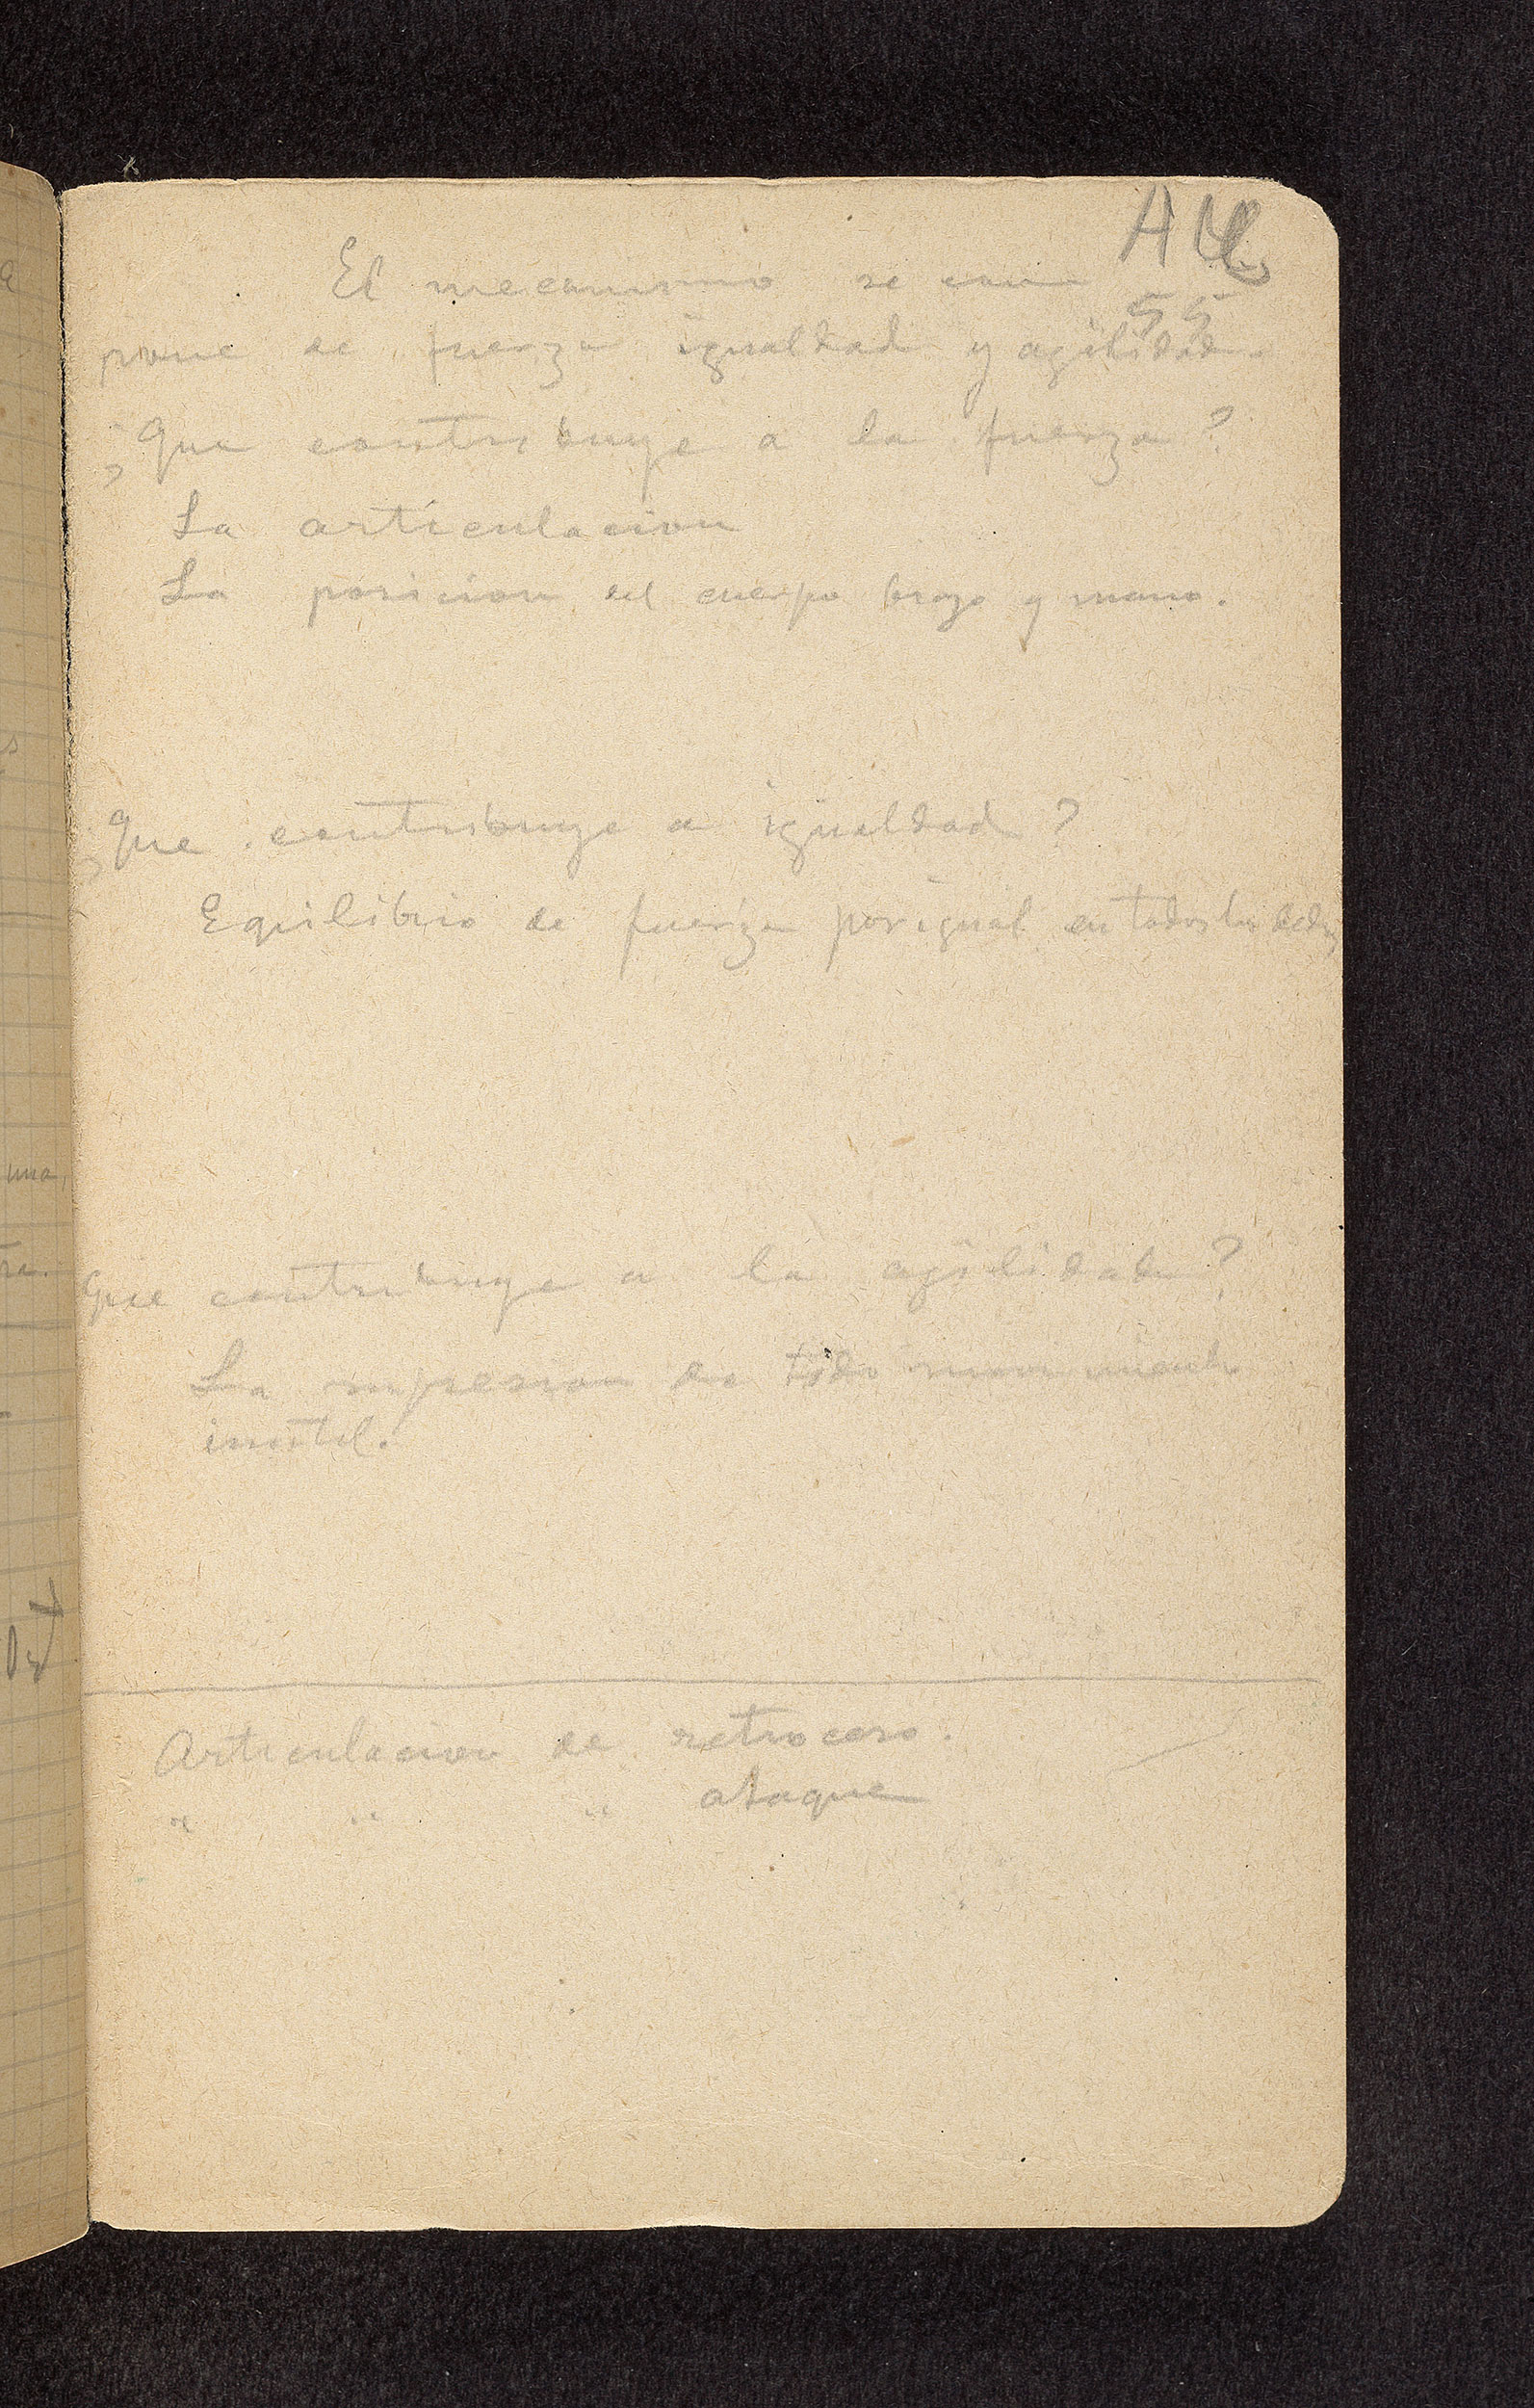 El mecanismo se com
55
pone de fuerza igualdad y agilidad.
¿Que contribuye a la fuerza?
La articulacion
La posicion del cuerpo brazo y mano.
¿Que contribuye a igualdad?
Equilibrio de fuerza por igual en todos los dedos
Que contribuye a la agilidad?
La supresion de todo movimiento
inutil.
Articulacion de retroceso.
" " " ataque
una